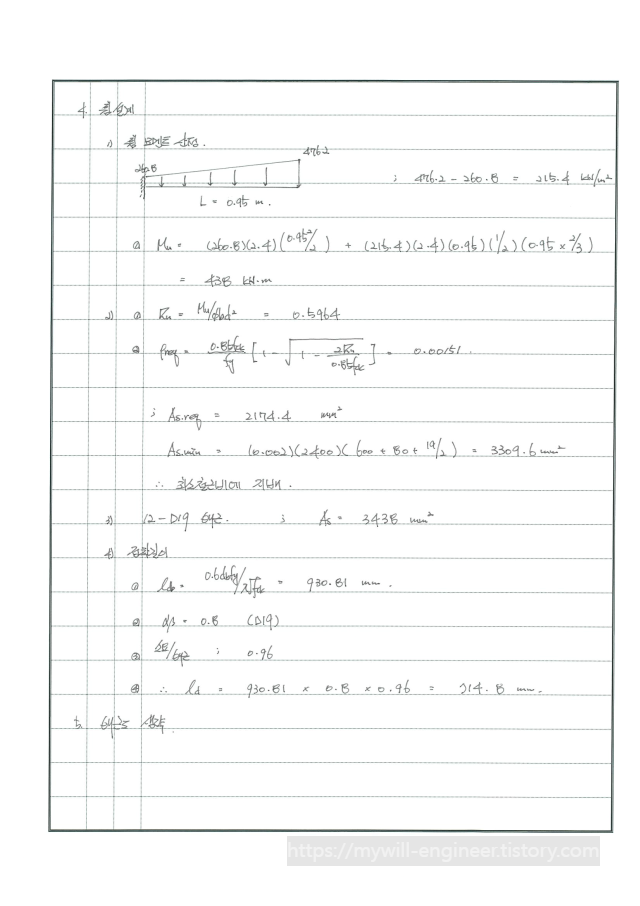 4. 휨설계
1) 휨 모멘트 산정.
476.2
260.8
; 476.2 - 260.8 = 215.4 kN/m²
L = 0.95 m.
① Mu = (260.8)(2.4)(0.95²/2) + (215.4)(2.4)(0.95)(1/2)(0.95 × 2/3)
= 438 kN·m
2) ① Ru = Mu/φbd² = 0.5964
② ρreq = 0.85fck/fy [1 - √(1 - 2Ru/0.85fck)] = 0.00151.
; As.req = 2174.4 mm²
As.min = (0.002)(2400)(600 + 80 + 19/2) = 3309.6 mm²
∴ 최소철근비에 지배.
3) 12-D19 배근. ; As = 3438 mm²
4) 정착길이
① ldb = 0.6dbfy/λ√fck = 930.81 mm.
② αβ = 0.8 (D19)
③ 소요/배근 ; 0.96
④ ∴ ld = 930.81 × 0.8 × 0.96 = 714.8 mm.
5. 배근도 생략.
https://mywill-engineer.tistory.com